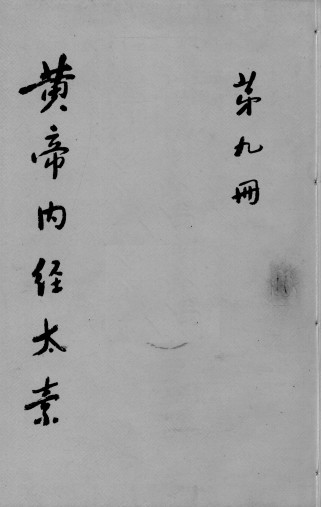 第九冊
黄帝内经太素